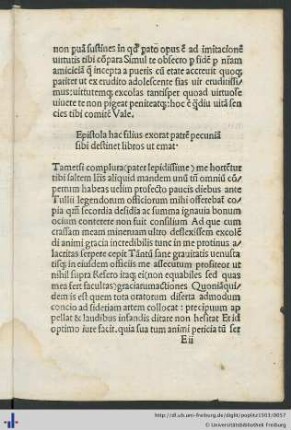 non puā sustines in qđ pato opus ē ad imitacionē
virtutis tibi cōpara Simul te obsecro p fidē p nr̄am
amiciciā q̄ incepta a pueris cū etate accreuit quoq;
patiet ut ex erudito adolescente fias uir erudissi-
mus: uirtutemq; excolas tantisper quoad uirtuose
uiuere te non pigeat peniteatq;: hoc ē q̄diu uitā sen
cies tibi comitē Vale.
Epistola hac filius exorat patrē pecuniā
sibi destinet libros ut emat·
Tametsi complura (pater lepidissime) me hortent̃
tibi saltem Iriis aliquid mandem unū tn̄ omniū cō-
pertum habeas uelim profecto paucis diebus ante
Tullii legendorum officiorum mihi offerebat̃ co
pia qm̄ secordia desidia ac summa ignauia bonum
ocium conterere non fuit consilium Ad que cum
crassam meam mineruam ultro deflexissem excolē
di animi gracia incredibilis tunc in me protinus a
lacritas serpere cepit Tātū sane grauitatis uenusta
tisq; in eiusdem officiis me assecutum profiteor ut
nihil supra Resero itaq; ei (non equabiles sed quas
mea fert facultas) graciarumactiones Quoniā qui-
dem is est quem tota oratorum diserta admodum
concio ad sideriam artem collocat: precipuum ap
pellat & laudibus infandis ditare non hesitat Et id
optimo iure facit. quia sua tum animi pericia tū ser
E ii
http://dl.ub.uni-freiburg.de/diglit/poplitz1503/0057
© Universitätsbibliothek Freiburg